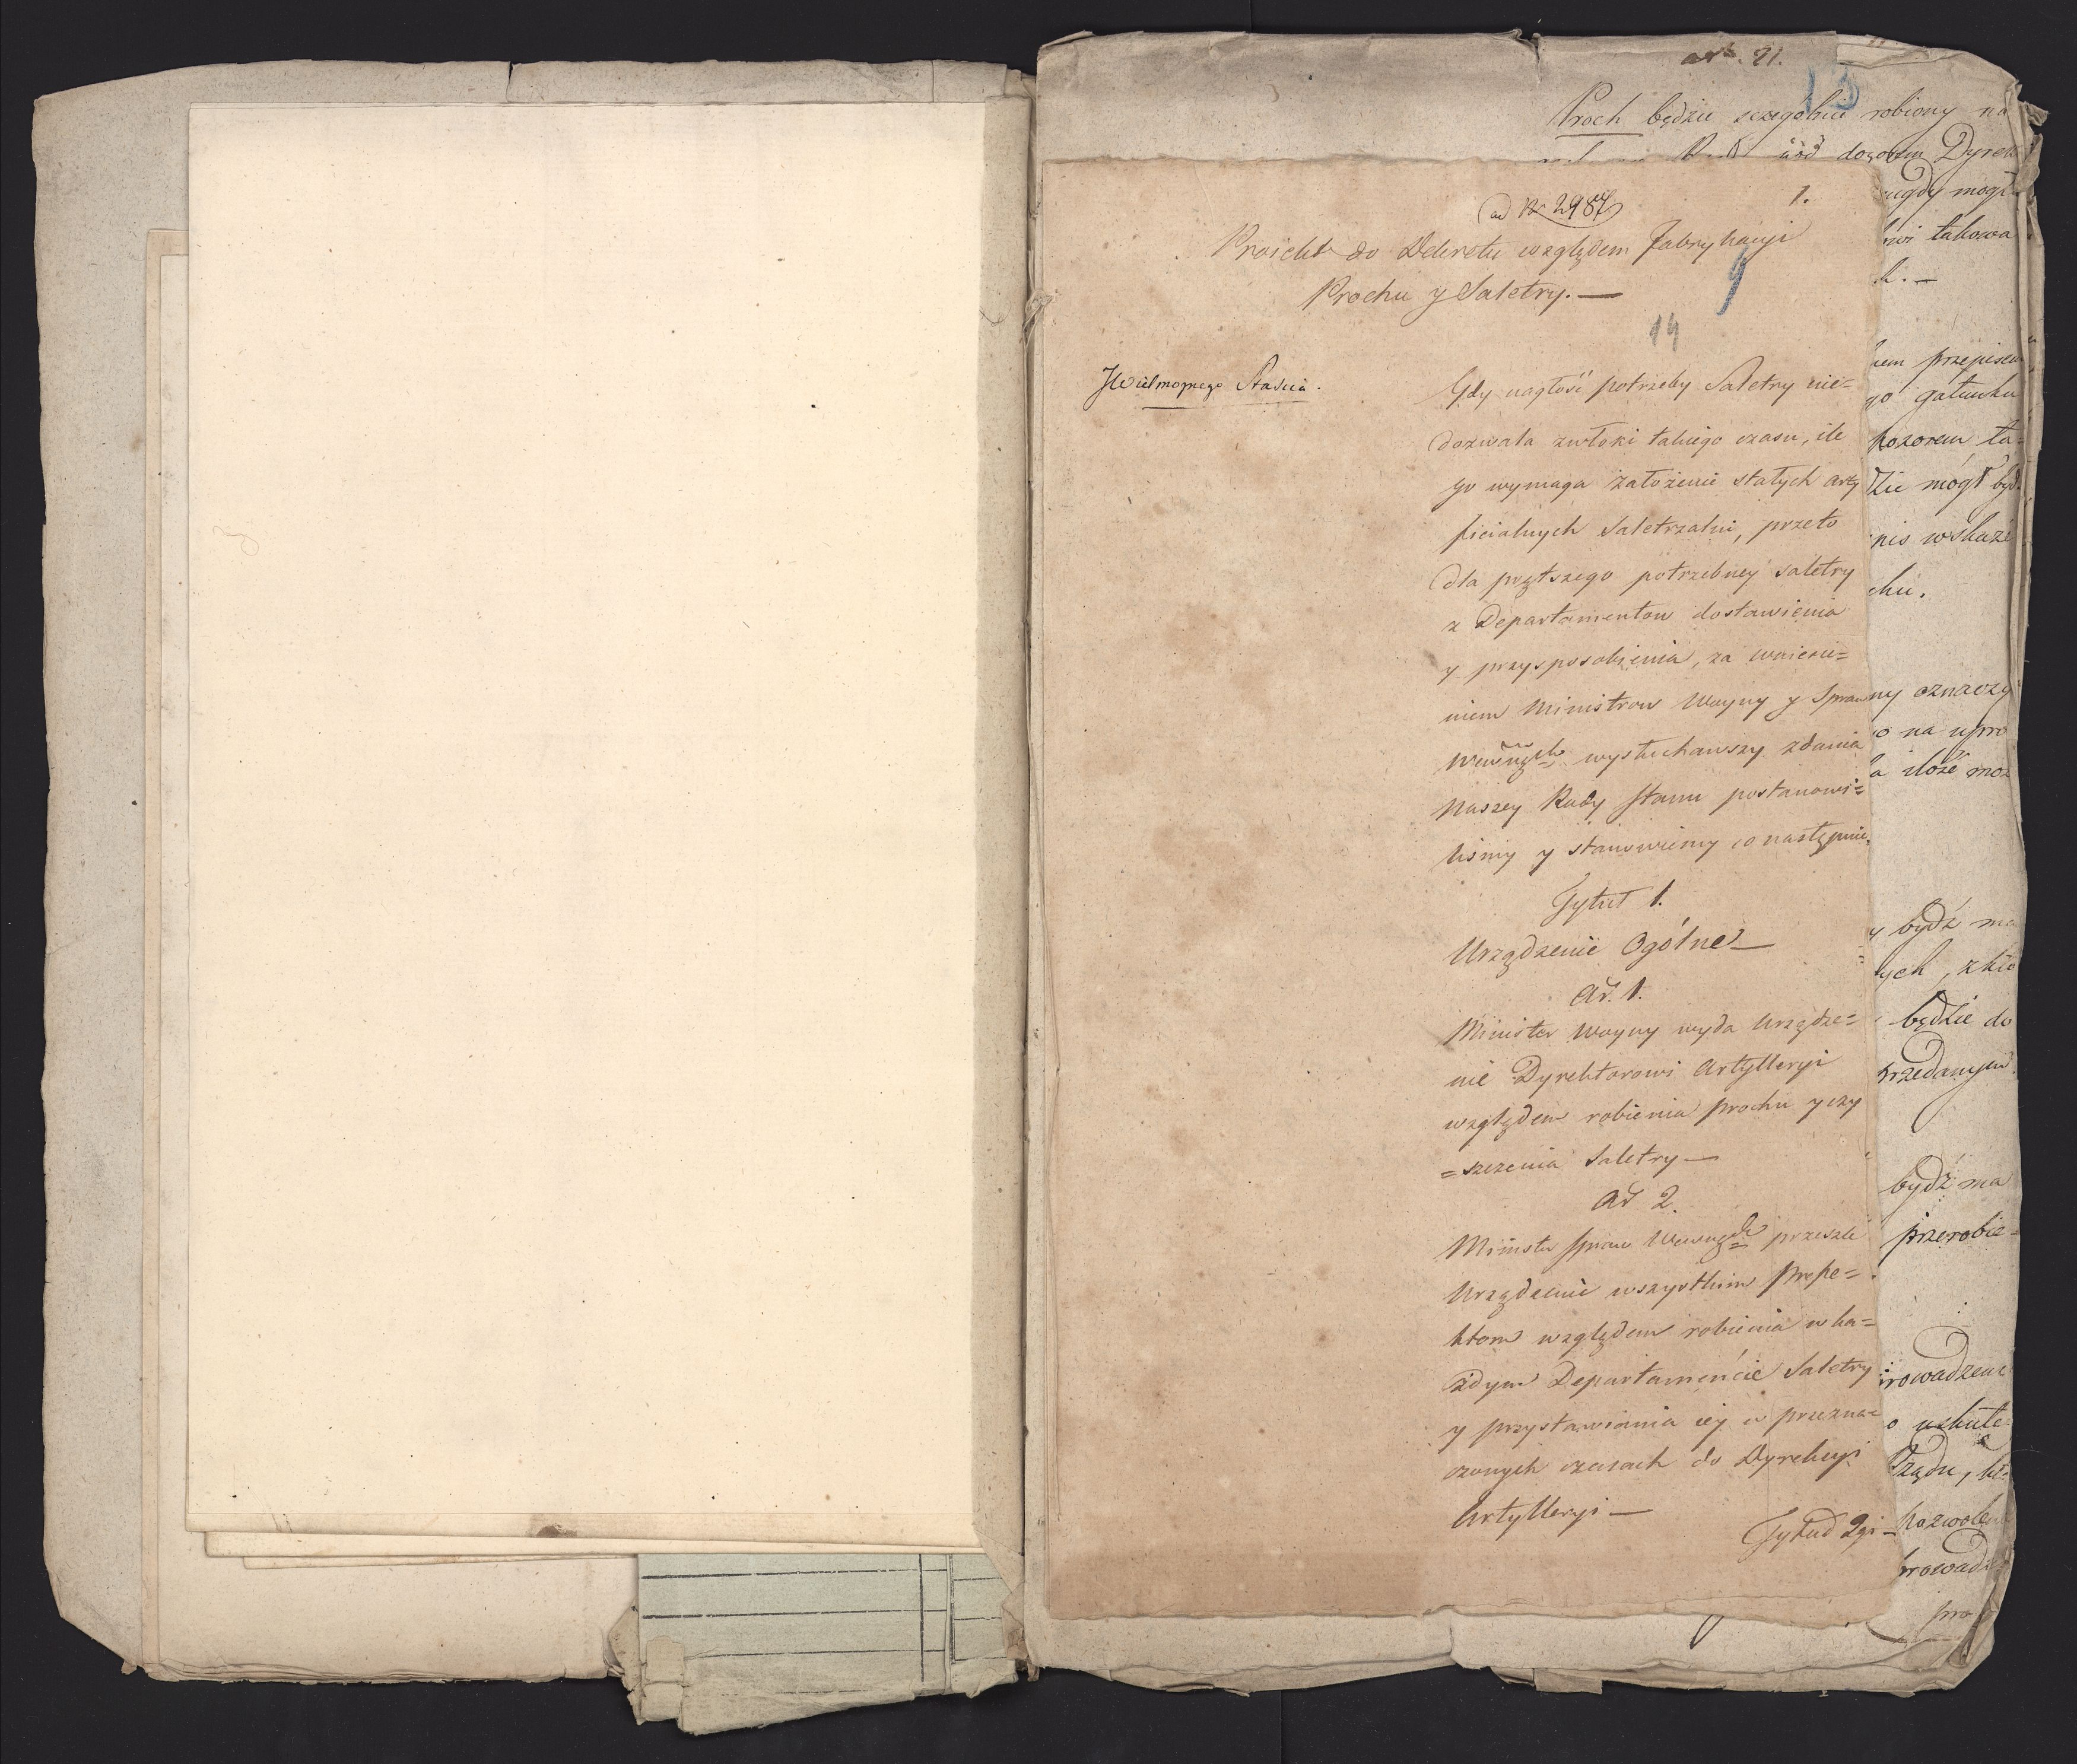 art. 21.
13
Proch będzie szczególnie robiony na
dozorem Dyrek
ad Nr 2987
1.
Proiekt do Dekretu względem Fabrykacyi
Prochu y Saletry. —
9
14
JWielmożnego Stascia.
Gdy nagłość potrzeby Saletry nie=
dozwala zwłoki takiego czasu, ile
go wymaga założenie stałych arty
ficialnych Saletrzalni, przeto
dla prętszego potrzebney saletry
z Departamentow dostawienia
y przysposobienia, za wniesie=
niem Ministrow Woyny y Spraw
Wewnęch wysłuchawszy zdania
Naszey Rady Stanu postanowi=
liśmy y stanowiemy co następuie,
Tytuł 1.
Urządzenie Ogólne —
Art. 1.
Minister Woyny wyda Urządze=
nie Dyrektorowi Artylleryi
względem robienia prochu y czy
=szczenia Saletry —
Art 2.
Minister Spraw Wewnęch przeszle
Urządzenie wszystkim Prefe=
ktom względem robienia w ka=
żdym Departamencie Saletry
y przystawiania iey w przezna=
czonych czasach do Dyrekcyi
Artylleryi —
Tytuł 2gi —
nigdy mogł
takowa
przepisem
go gatunku
pozorem ta=
dzie mógł być
pis wskaże
chu.
ny oznaczy
o na upro
a ilość moż
y bydź ma
ych, z któ
będzie do
przedanym
bydź ma
przerobie=
prowadzeni
o uskute=
Rządu, kt=
pozwole
prowadz
pro